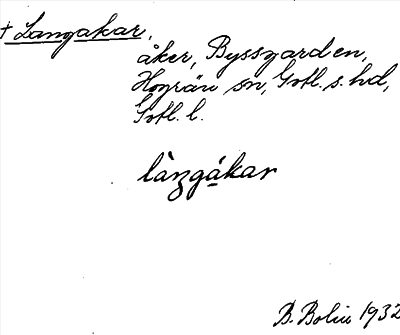 † Langakar,
åker, Byssgarden,
Hogrän sn, Gotl. s. hd,
Gotl. l.
làŋgákar
B. Bolin 1932